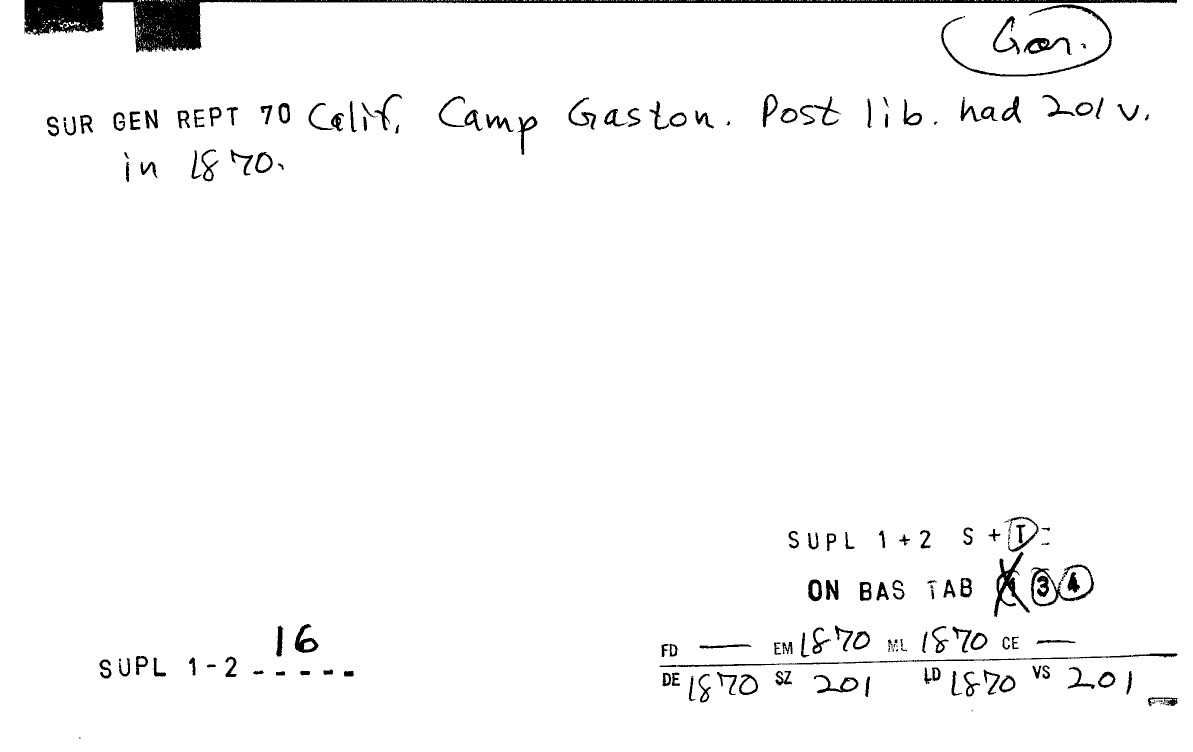 Gen.
SUR GEN REPT 70 Calif. Camp Gaston. Post lib. had 201 v.
in 1870.
SUPL 1+2 S + I =
ON BAS TAB 3 4
SUPL 1-2 16
FD — EM 1870 ML 1870 CE —
DE 1870 SZ 201 LD 1870 VS 201